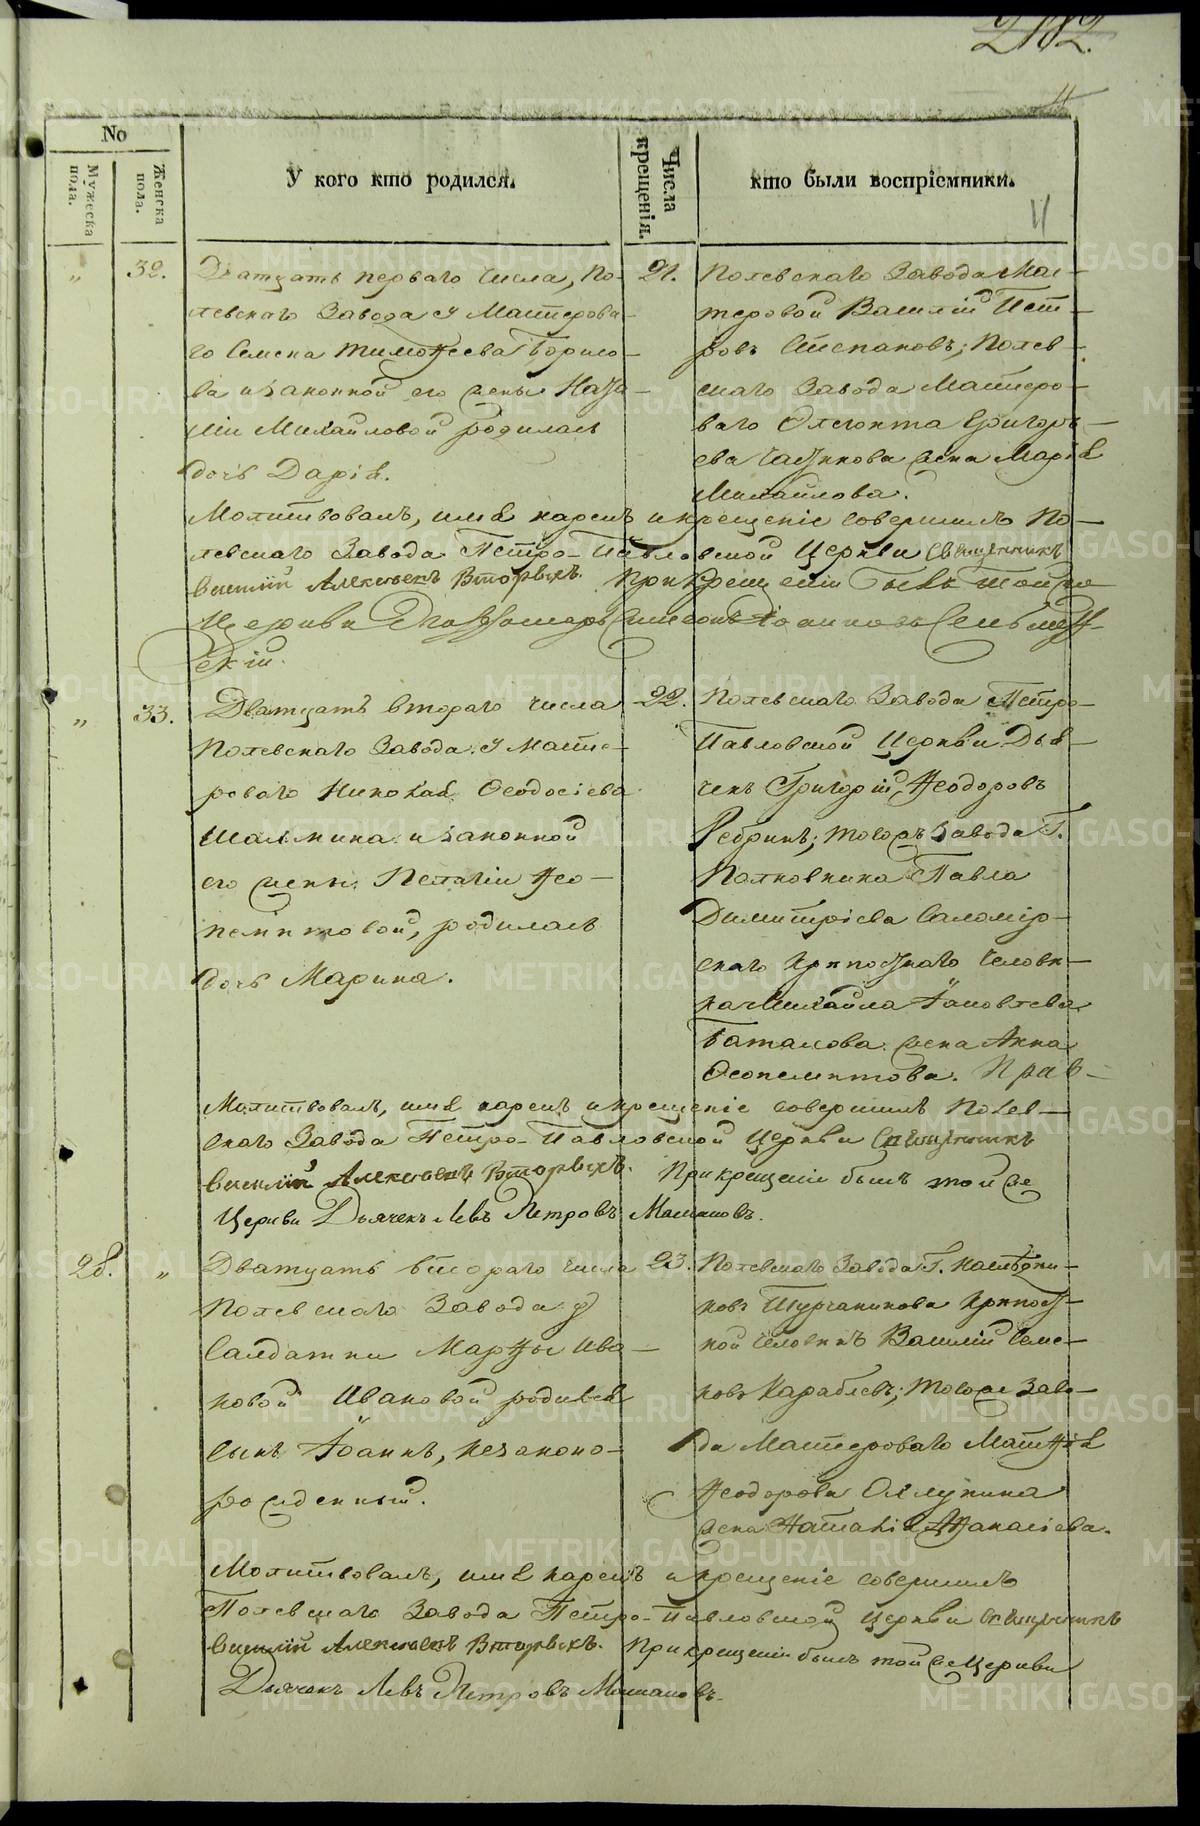 282.
11
No
Мужеска пола.
Женска пола.
У кого кто родился.
Числа крещенія.
кто были воспріемники.
11
„ 32.
Дватцать перваго числа, По-
левскаго Завода у Мастерова-
го Семена Тимоѳеева
ва и законной его жены
Михайловой родилась
дочь Дарія.
21.
Полевскаго Завода Мас-
теровой Василій Пет-
ровъ Степановъ; Полев-
скаго Завода Мастеро-
ваго Григорь-
ева жена Марія
Михайлова.
Молитвовалъ, имя нарекъ и крещеніе совершилъ По-
левскаго Завода Петро-Павловской Церкви Священникъ
Василій Алексеевъ Вторыхъ. При крещеніи былъ тойже
Церкви

„ 33.
Дватцать втораго числа
Полевскаго Завода у Масте-
роваго Николая Ѳеодосіева
Шалмина и законной
его жены Пелагіи Ѳео-
пемптовой, родилась
дочь Марина.
22.
Полевскаго Завода Петро-
Павловской Церкви Дья-
чекъ Григорій Ѳеодоровъ
Ребринъ; тогожъ завода Г.
Полковника Павла
Димитріева Саломір-
скаго крѣпостнаго человѣ-
ка Михайла Іаковлева
Баталова жена Анна
Ѳеопемптова.
Молитвовалъ, имя нарекъ и крещеніе совершилъ Полев-
скаго Завода Петро-Павловской Церкви Священникъ
Василій Алексеевъ Вторыхъ. При крещеніи былъ той же
Церкви Дьячекъ Левъ Петровъ
28. „
Дватцать втораго числа
Полевскаго Завода у
Салдатки Марѳы Ива-
новой Ивановой родился
сынъ Іоаннъ, незаконо-
рожденный.
23.
Полевскаго Завода Г. Наслѣдни-
ковъ Турчанинова крѣпост-
ной человѣкъ Василій Семе-
новъ Караблевъ; тогоже Заво-
да Мастероваго Матѳія
Ѳеодорова
жена Наталія Аѳанасіева.
Молитвовалъ, имя нарекъ и крещеніе совершилъ
Полевскаго Завода Петро-Павловской Церкви Священникъ
Василій Алексеевъ Вторыхъ. При крещеніи былъ той же Церкви
Дьячекъ Левъ Петровъ
METRIKI.GASO-URAL.RU